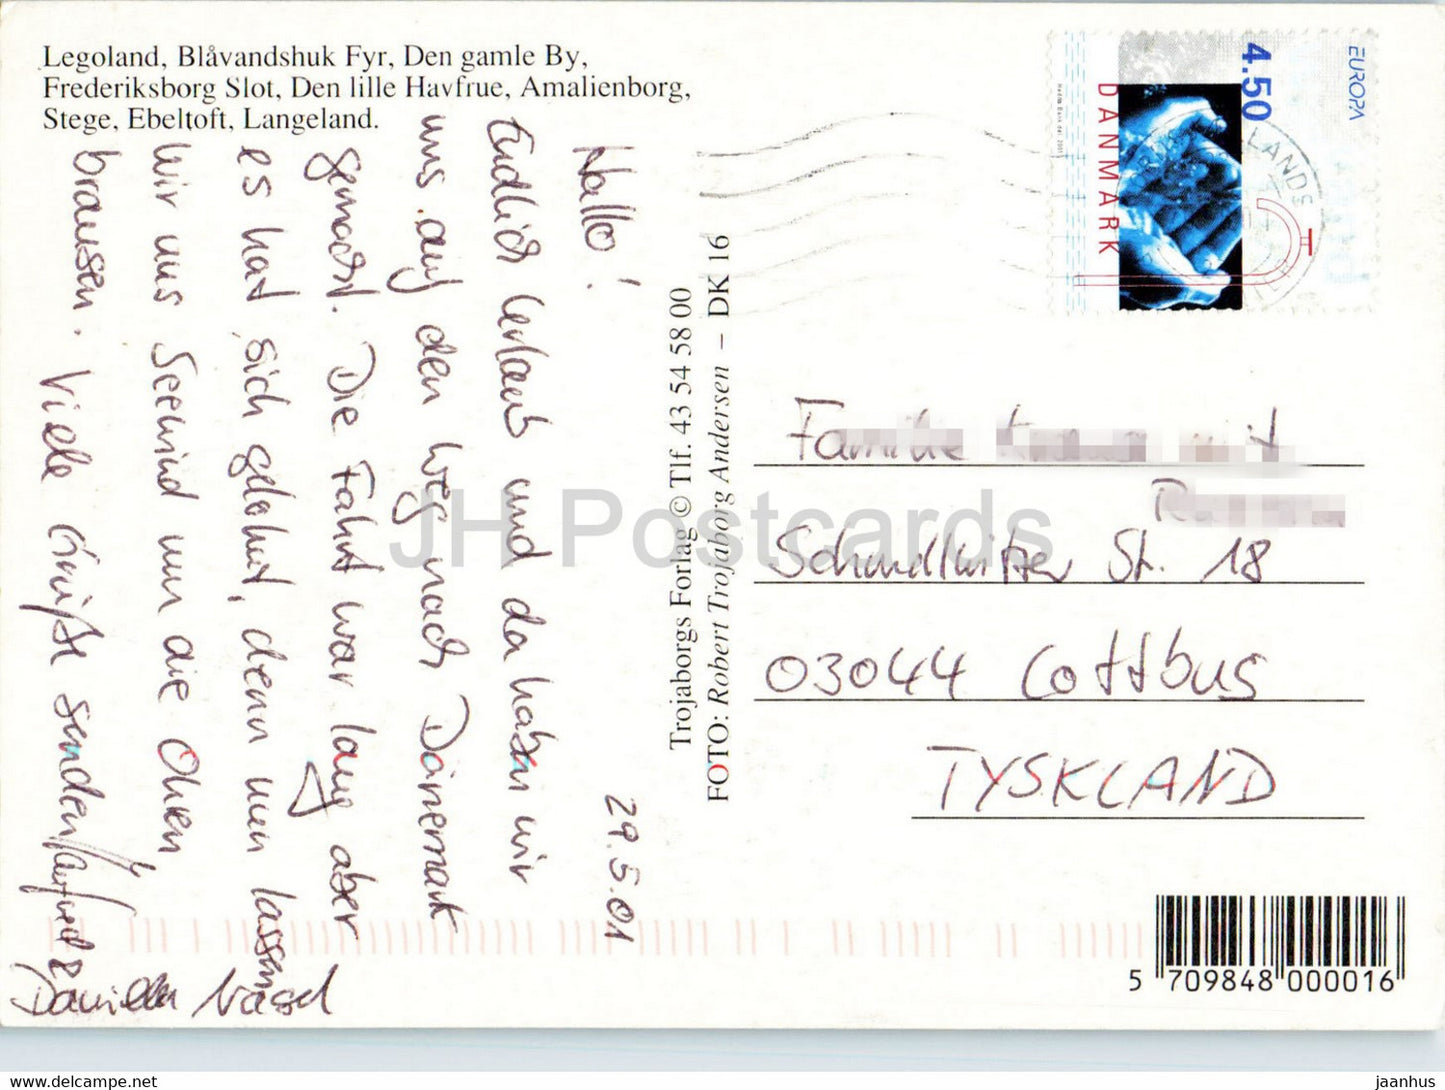 Legoland, Blåvandshuk Fyr, Den gamle By,
Frederiksborg Slot, Den lille Havfrue, Amalienborg,
Stege, Ebeltoft, Langeland.
29.5.01
Hallo!
Endlich Urlaub und da haben wir
uns auf den Weg nach Dänemark
gemacht. Die Fahrt war lang aber
es hat sich gelohnt, denn nun lassen
wir uns Seewind um die Ohren
brausen. Viele Grüße senden Manfred &
Daniela Nasel
Trojaborgs Forlag © Tlf. 43 54 58 00
FOTO: Robert Trojaborg Andersen – DK 16
EUROPA
4.50
DANMARK
LANDS
Familie mit
Schmellwitzer St. 18
03044 Cottbus
TYSKLAND
5 709848 000016
JH Postcards
delcampe.net
jaanhus